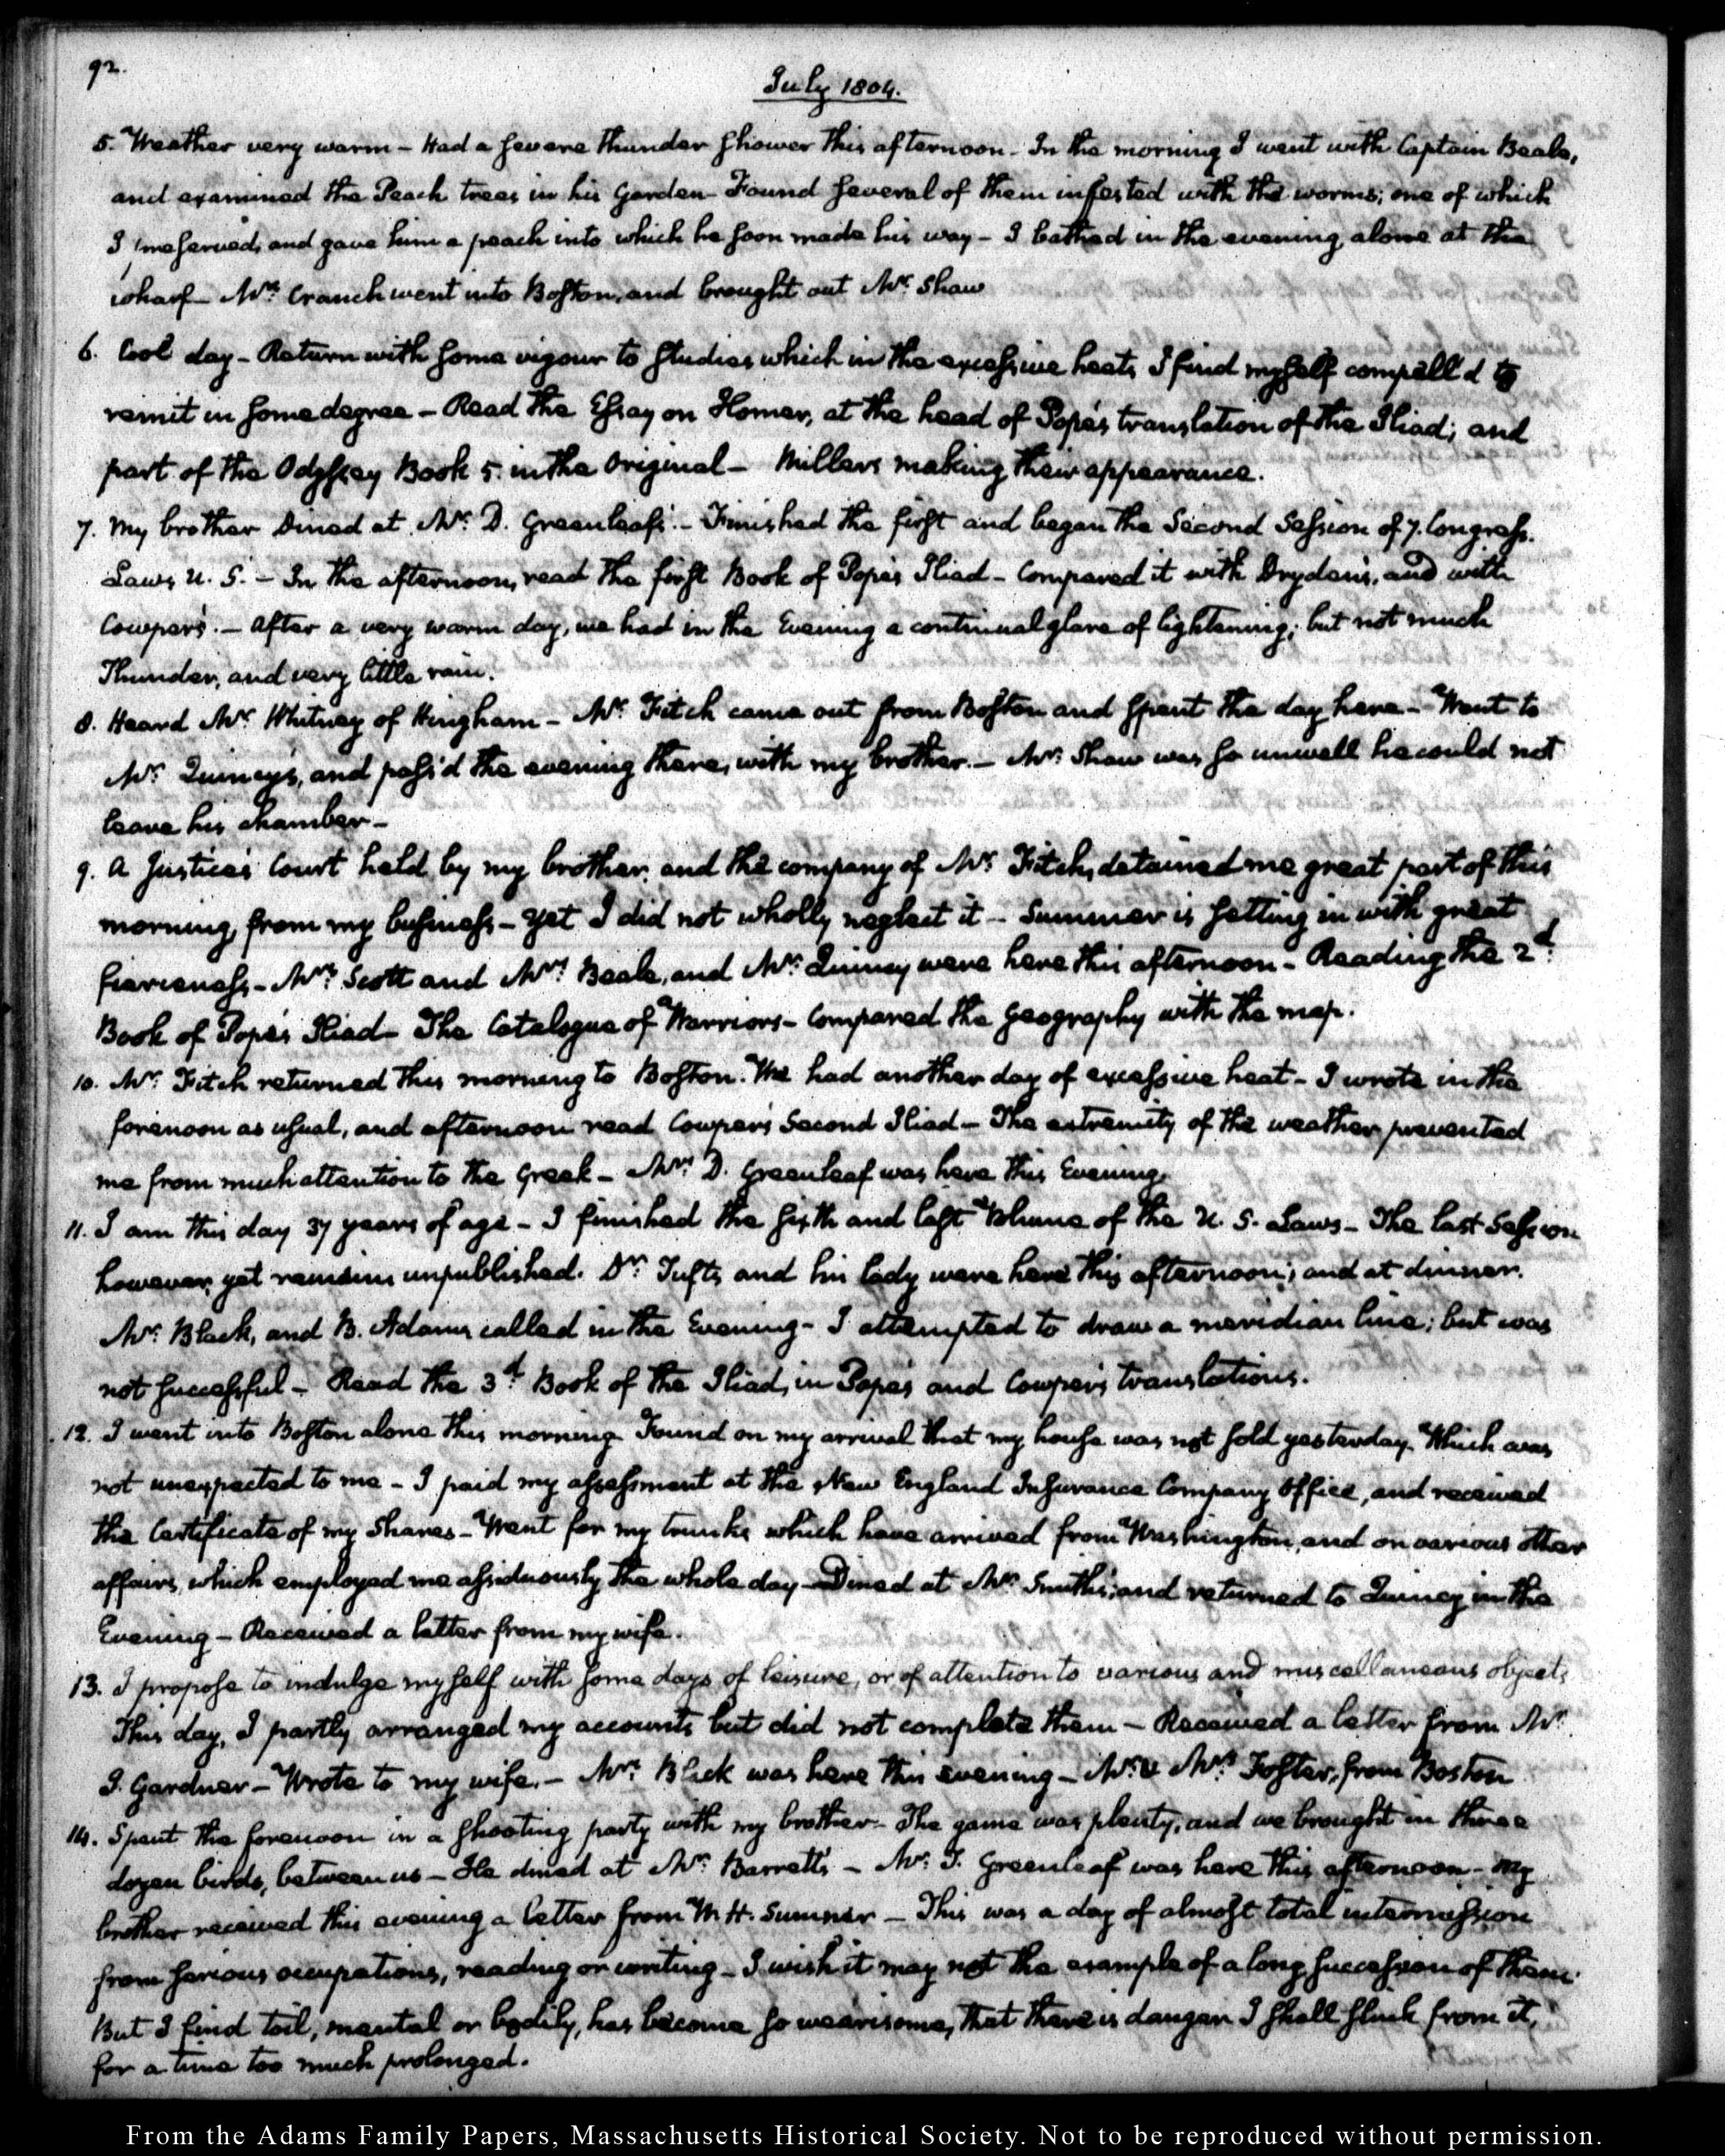 92.
July 1804.
5. Weather very warm – Had a severe thunder shower this afternoon – In the morning I went with Captain Beale,
and examined the Peach trees in his Garden – Found several of them infested with the worms; one of which
I preserved, and gave him a peach into which he soon made his way – I bathed in the evening, alone at the
wharf – Mrs. Cranch went into Boston, and brought out Mr. Shaw
6. Cool day – Return with some vigour to studies which in the excessive heats, I find myself compell'd to
remit in some degree – Read the Essay on Homer, at the head of Pope's translation of the Iliad; and
part of the Odyssey Book 5. in the Original – Millers making their appearance.
7. My brother Dined at Mr. D. Greenleaf's. – Finished the first and began the Second Session of 7. Congress.
Laws U. S. – In the afternoon, read the first Book of Pope's Iliad – Compared it with Dryden's, and with
Cowper's. – After a very warm day, we had in the Evening a continual glare of lightening; but not much
Thunder, and very little rain.
8. Heard Mr. Whitney of Hingham – Mr. Fitch came out from Boston and spent the day here – Went to
Mr. Quincy's, and pass'd the evening there, with my brother. – Mr. Shaw was so unwell he could not
leave his chamber –
9. A Justice's Court held by my brother, and the company of Mr. Fitch, detained me great part of this
morning, from my business – Yet I did not wholly neglect it – Summer is setting in with great
fierceness – Mrs. Scott and Mrs. Beale, and Mr. Quincy were here this afternoon – Reading the 2d.
Book of Pope's Iliad – The Catalogue of Warriors – Compared the Geography with the map.
10. Mr. Fitch returned this morning to Boston. We had another day of excessive heat – I wrote in the
forenoon as usual, and afternoon read Cowper's Second Iliad – The extremity of the weather prevented
me from much attention to the Greek – Mrs. D. Greenleaf was here this Evening.
11. I am this day 37 years of age – I finished the sixth and last Volume of the U. S. Laws – The last Session
however, yet remains unpublished. Dr. Tufts and his lady were here this afternoon; and at dinner.
Mr. Black, and B. Adams called in the Evening – I attempted to draw a meridian line; but was
not successful – Read the 3d. Book of the Iliad, in Pope's and Cowper's translations.
12. I went into Boston alone this morning. Found on my arrival that my house was not sold yesterday. Which was
not unexpected to me – I paid my assessment at the New England Insurance Company Office, and received
the Certificate of my Shares – Went for my trunks which have arrived from Washington, and on various other
affairs, which employed me assiduously the whole day – Dined at Mr. Smith's; and returned to Quincy in the
Evening – Received a letter from my wife.
13. I propose to indulge myself with some days of leisure, or of attention to various and miscellaneous objects
This day, I partly arranged my accounts but did not complete them – Received a letter from Mr.
J. Gardner – Wrote to my wife. – Mrs. Black was here this evening – Mr. & Mrs. Foster, from Boston
14. Spent the forenoon in a shooting party with my brother – The game was plenty, and we brought in three
dozen birds, between us – He dined at Mr. Barrett's – Mr. T. Greenleaf was here this afternoon – My
brother received this evening a letter from W. H. Sumner – This was a day of almost total intermission
from serious occupations, reading or writing – I wish it may not the example of a long succession of them.
But I find toil, mental or bodily, has become so wearisome, that there is danger I shall shrink from it,
for a time too much prolonged.
From the Adams Family Papers, Massachusetts Historical Society. Not to be reproduced without permission.